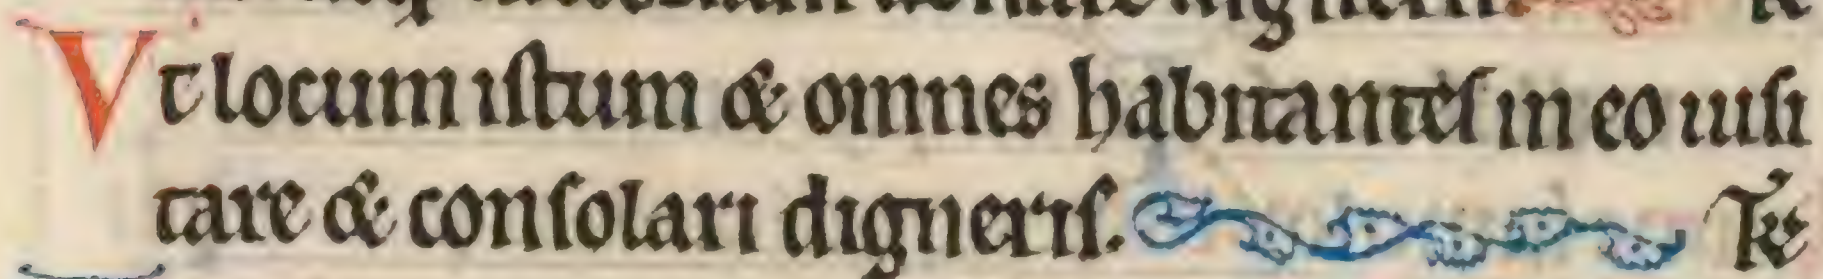 digneris.
Vt locum istum & omnes habitantes in eo uisi
tare & consolari digneris. Te